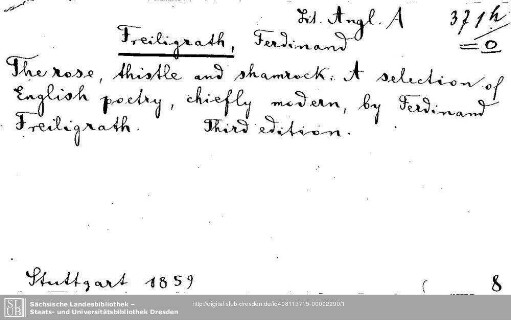 Lit. Angl. A 371h
= 0
Freiligrath, Ferdinand
The rose, thistle and shamrock. A selection of
English poetry, chiefly modern, by Ferdinand
Freiligrath. Third edition.
Stuttgart 1859 8
SLUB
Sächsische Landesbibliothek –
Staats- und Universitätsbibliothek Dresden